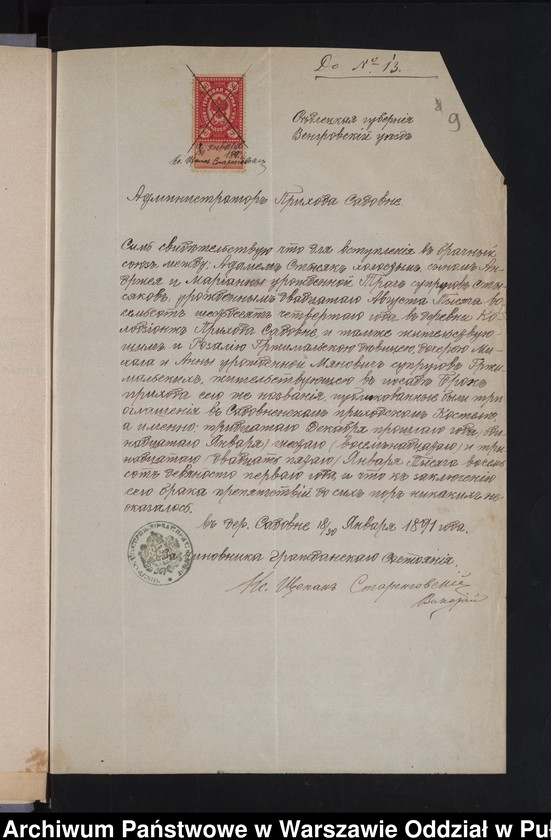 До № 13.
9
Сѣдлецкая губернія
Венгровскій уѣздъ
18/30 Января
1891
Администраторъ Прихода Садовне
Симъ свидѣтельствую что для вступленія въ брачный
союзъ между: Адамомъ Стысякъ холостымъ, сыномъ Ан-
држея и Маріанны урожденной Трачъ супруговъ Сты-
сяковъ, урожденнымъ двадцатаго Августа тысяча во-
семьсотъ шестьдесятъ четвертаго года въ деревни
Прихода Садовне, и также жительствую-
щимъ и Розалію Гржимальскою дѣвицею, дочерью Ми-
хала и Анны урожденной супруговъ Гржи-
мальскихъ, жительствующею въ посадѣ Брокъ
прихода сего же названія публикованные были три
оглашенія въ Садовненскомъ приходскомъ Костелѣ,
а именно: тридцатаго Декабря прошлаго года,
надцатаго Января) шестаго (восемьнадцатаго) и три-
надцатаго (двадцать пятаго) Января тысяча восемь-
сотъ девяносто перваго года, и что къ заключенію
сего брака препятствій до сихъ поръ никакихъ не-
оказалось.
въ дер. Садовне 18/30 Января 1891 года.
Чиновника Гражданскаго Состоянія.
Кс. Щепанъ
Archiwum Państwowe w Warszawie Oddział w Pu